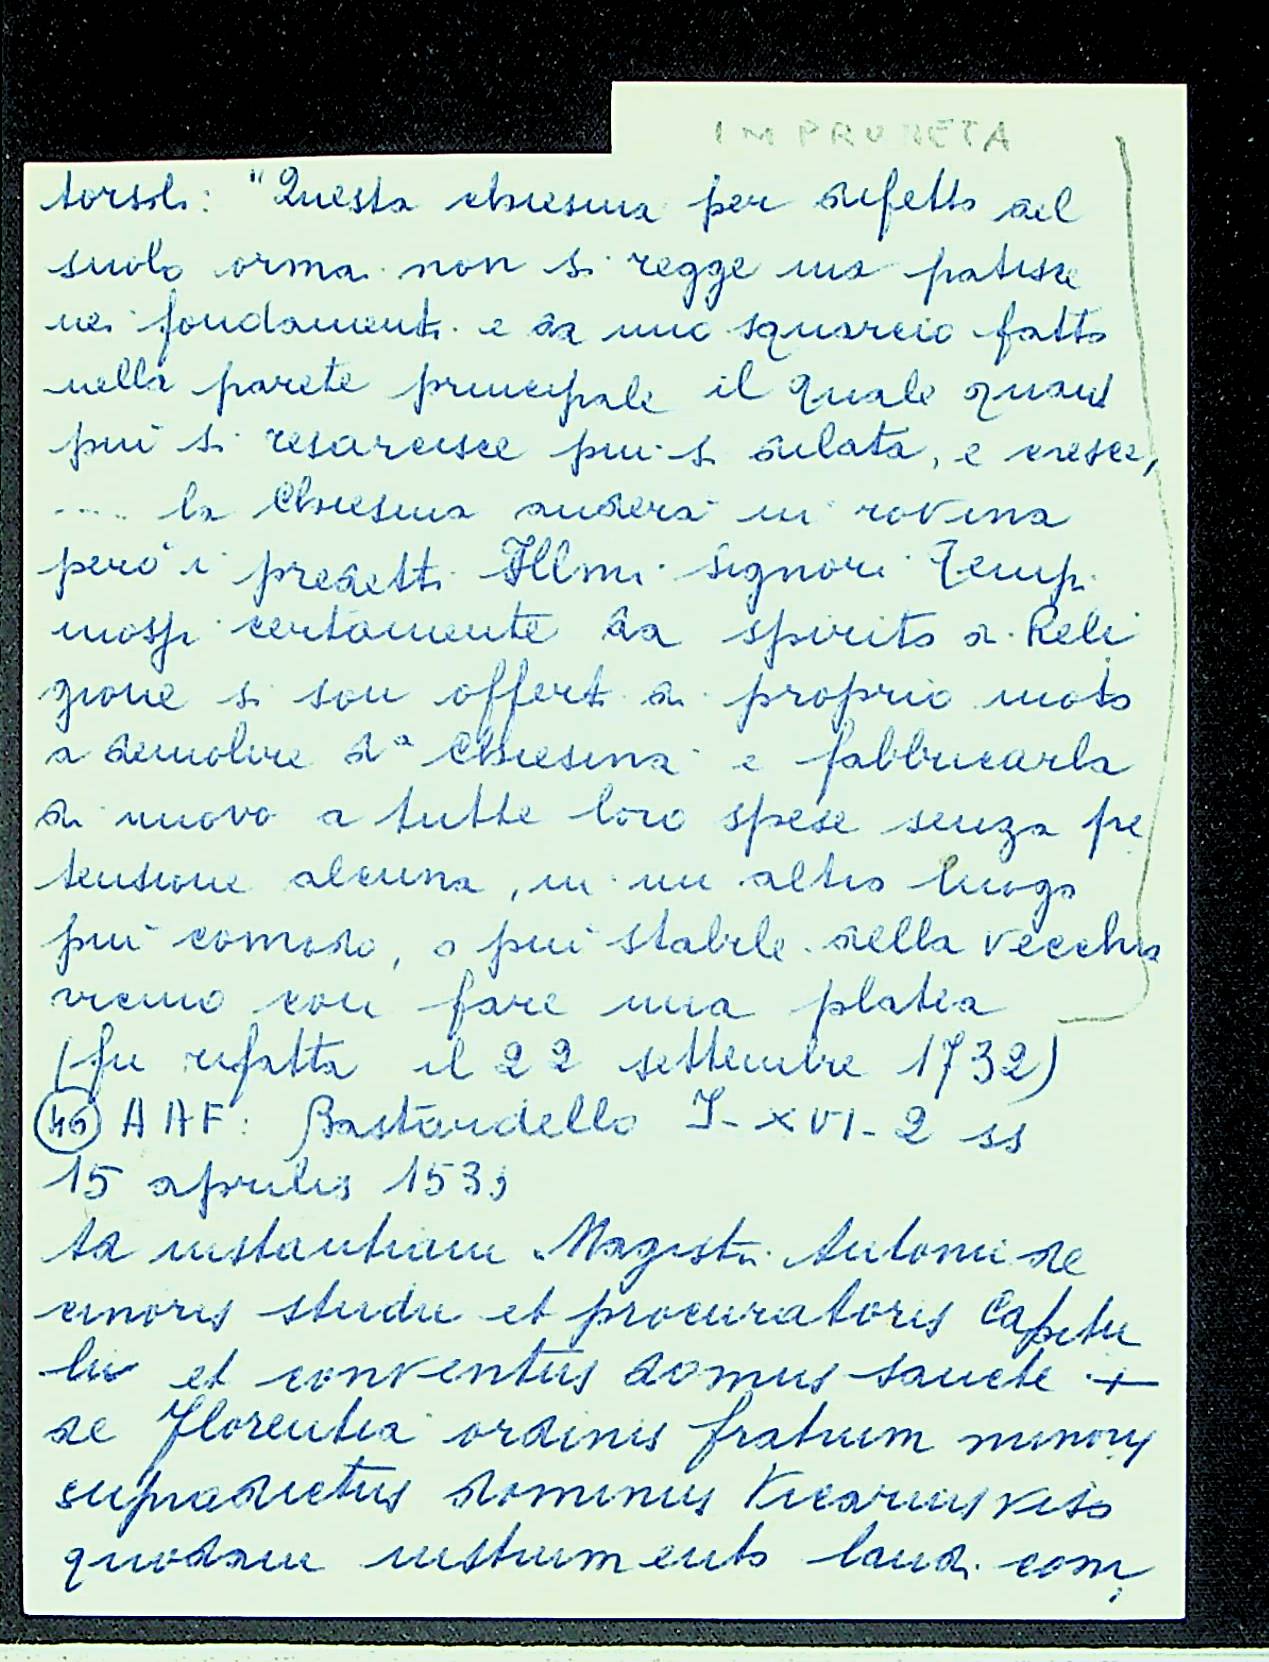 IMPRUNETA
torsoli: "Questa chiesina per difetto del
suolo ormai non si regge ma patisce
nei fondamenti e da uno squarcio fatto
nella parete principale il quale quant
più si resarcisce più si dilata, e cresce,
.... la Chiesina anderà in rovina
però i predetti Illmi Signori Tempi
mossi certamente da spirito di Reli
gione si son offerti di proprio moto
a demolire da Chiesina e fabbricarla
di nuovo a tutte loro spese senza pre
tensione alcuna, in un altro luogo
più comodo, o più stabile della vecchia
vicino con fare una platea
(fu rifatta il 22 settembre 1732)
46 AAF: Bastardello I-XVI-2 ss
15 aprilis 1539
ta instantiam Magistri Antonii de
cinoris studii et procuratoris Capitu
lii et conventus domus sancte +
de Florentia ordinis fratrum minory
supradictus dominus Vicarius viso
quodam instrumento laudi com,